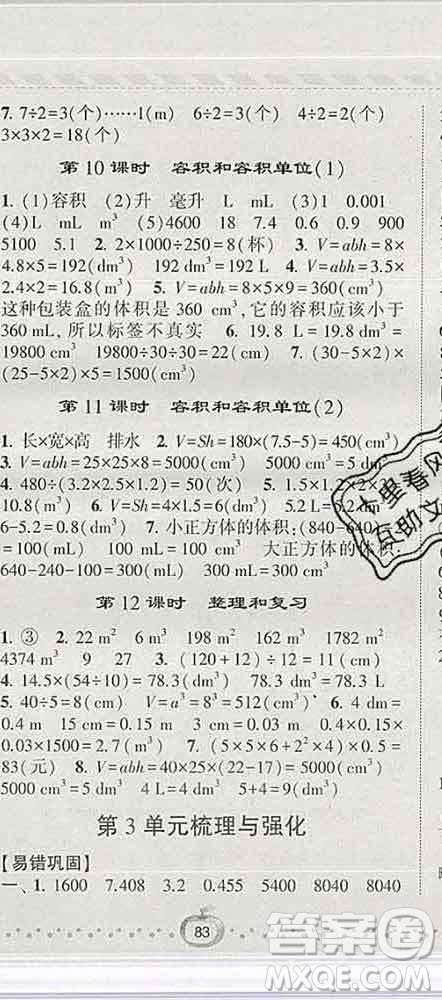 7. 7÷2=3(个)……1(m)　6÷2=3(个)　4÷2=2(个)
3×3×2=18(个)
第 10 课时　容积和容积单位(1)
1. (1)容积　(2)升　毫升　L　mL　(3)1　0.001
(4)L　mL　m³　(5)4600　18　7.4　0.6　0.9　900
5100　5.1　2. 2×1000÷250=8(杯)　3. V=abh=8×
4.8×5=192(dm³)　192 dm³=192 L　4. V=abh=3.5×
2.4×2=16.8(dm³)　5. V=abh=8×5×9=360(cm³)
这种包装盒的体积是 360 cm³,它的容积应该小于
360 mL,所以标签不真实　6. 19.8 L=19.8 dm³=
19800 cm³　19800÷30÷30=22(cm)　7. (30-5×2)×
(25-5×2)×5=1500(cm³)
第 11 课时　容积和容积单位(2)
1. 长×宽×高　排水　2. V=Sh=180×(7.5-5)=450(cm³)
3. V=abh=25×25×8=5000(cm³)　5000 cm³=5000 mL
4. 480÷(3.2×2.5×1.2)=50(次)　5. 1.5×1.2×2×3=
10.8(m³)　6. V=Sh=4×1.5=6(dm³)　5.2 L=5.2 dm³
6-5.2=0.8(dm³)　7. 小正方体的体积:(840-640)÷2
=100(mL)　100 mL=100 cm³　大正方体的体积:
640-240-100=300(mL)　300 mL=300 cm³
第 12 课时　整理和复习
1. ③　2. 22 m²　6 m³　198 m²　162 m³　1782 m²
4374 m³　9　27　3. (120+12)÷12=11(dm³)
4. 14.5×(54÷10)=78.3(dm³)　78.3 dm³=78.3 L
5. 40÷5=8(cm)　V=a³=8³=512(cm³)　6. 4 dm=
0.4 m　15 cm=0.15 m　3 cm=0.03 m　0.4×0.15×
0.03×1500=2.7(m³)　7. (5×5×6+2²×4)×0.5=
83(元)　8. V=abh=40×25×(22-17)=5000(cm³)
5000 cm³=5 dm³　4 L=4 dm³　5+4=9(dm³)
第 3 单元梳理与强化
【易错巩固】
一、1. 1600　7.408　3.2　0.455　5400　8040　8040
83
十里春风
互助文
答案圈
MXQE.COM